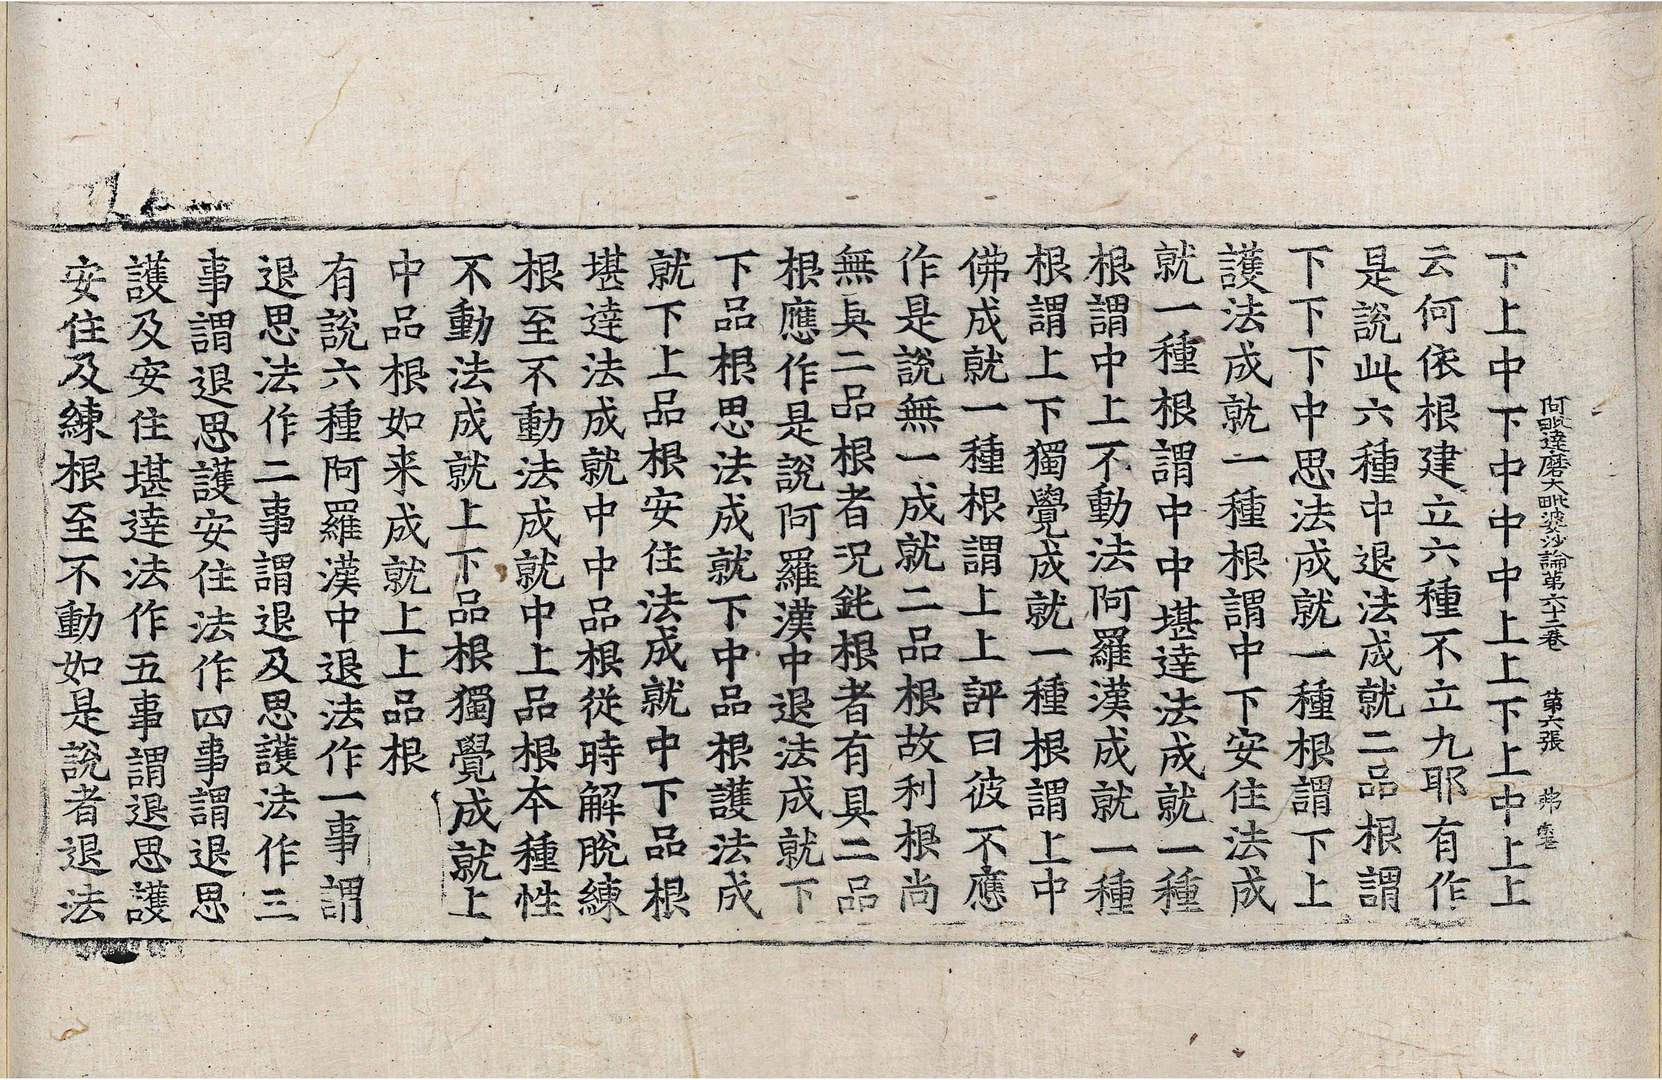 阿毗達磨大毗婆沙論第六十二卷　第六張　弗
下上中下中中中上上下上中上上
云何依根建立六種不立九耶有作
是說此六種中退法成就二品根謂
下下下中思法成就一種根謂下上
護法成就一種根謂中下安住法成
就一種根謂中中堪達法成就一種
根謂中上不動法阿羅漢成就一種
根謂上下獨覺成就一種根謂上中
佛成就一種根謂上上評曰彼不應
作是說無一成就二品根故利根尚
無具二品根者况鈍根者有具二品
根應作是說阿羅漢中退法成就下
下品根思法成就下中品根護法成
就下上品根安住法成就中下品根
堪達法成就中中品根從時解脫練
根至不動法成就中上品根本種性
不動法成就上下品根獨覺成就上
中品根如来成就上上品根
有說六種阿羅漢中退法作一事謂
退思法作二事謂退及思護法作三
事謂退思護安住法作四事謂退思
護及安住堪達法作五事謂退思護
安住及練根至不動如是說者退法